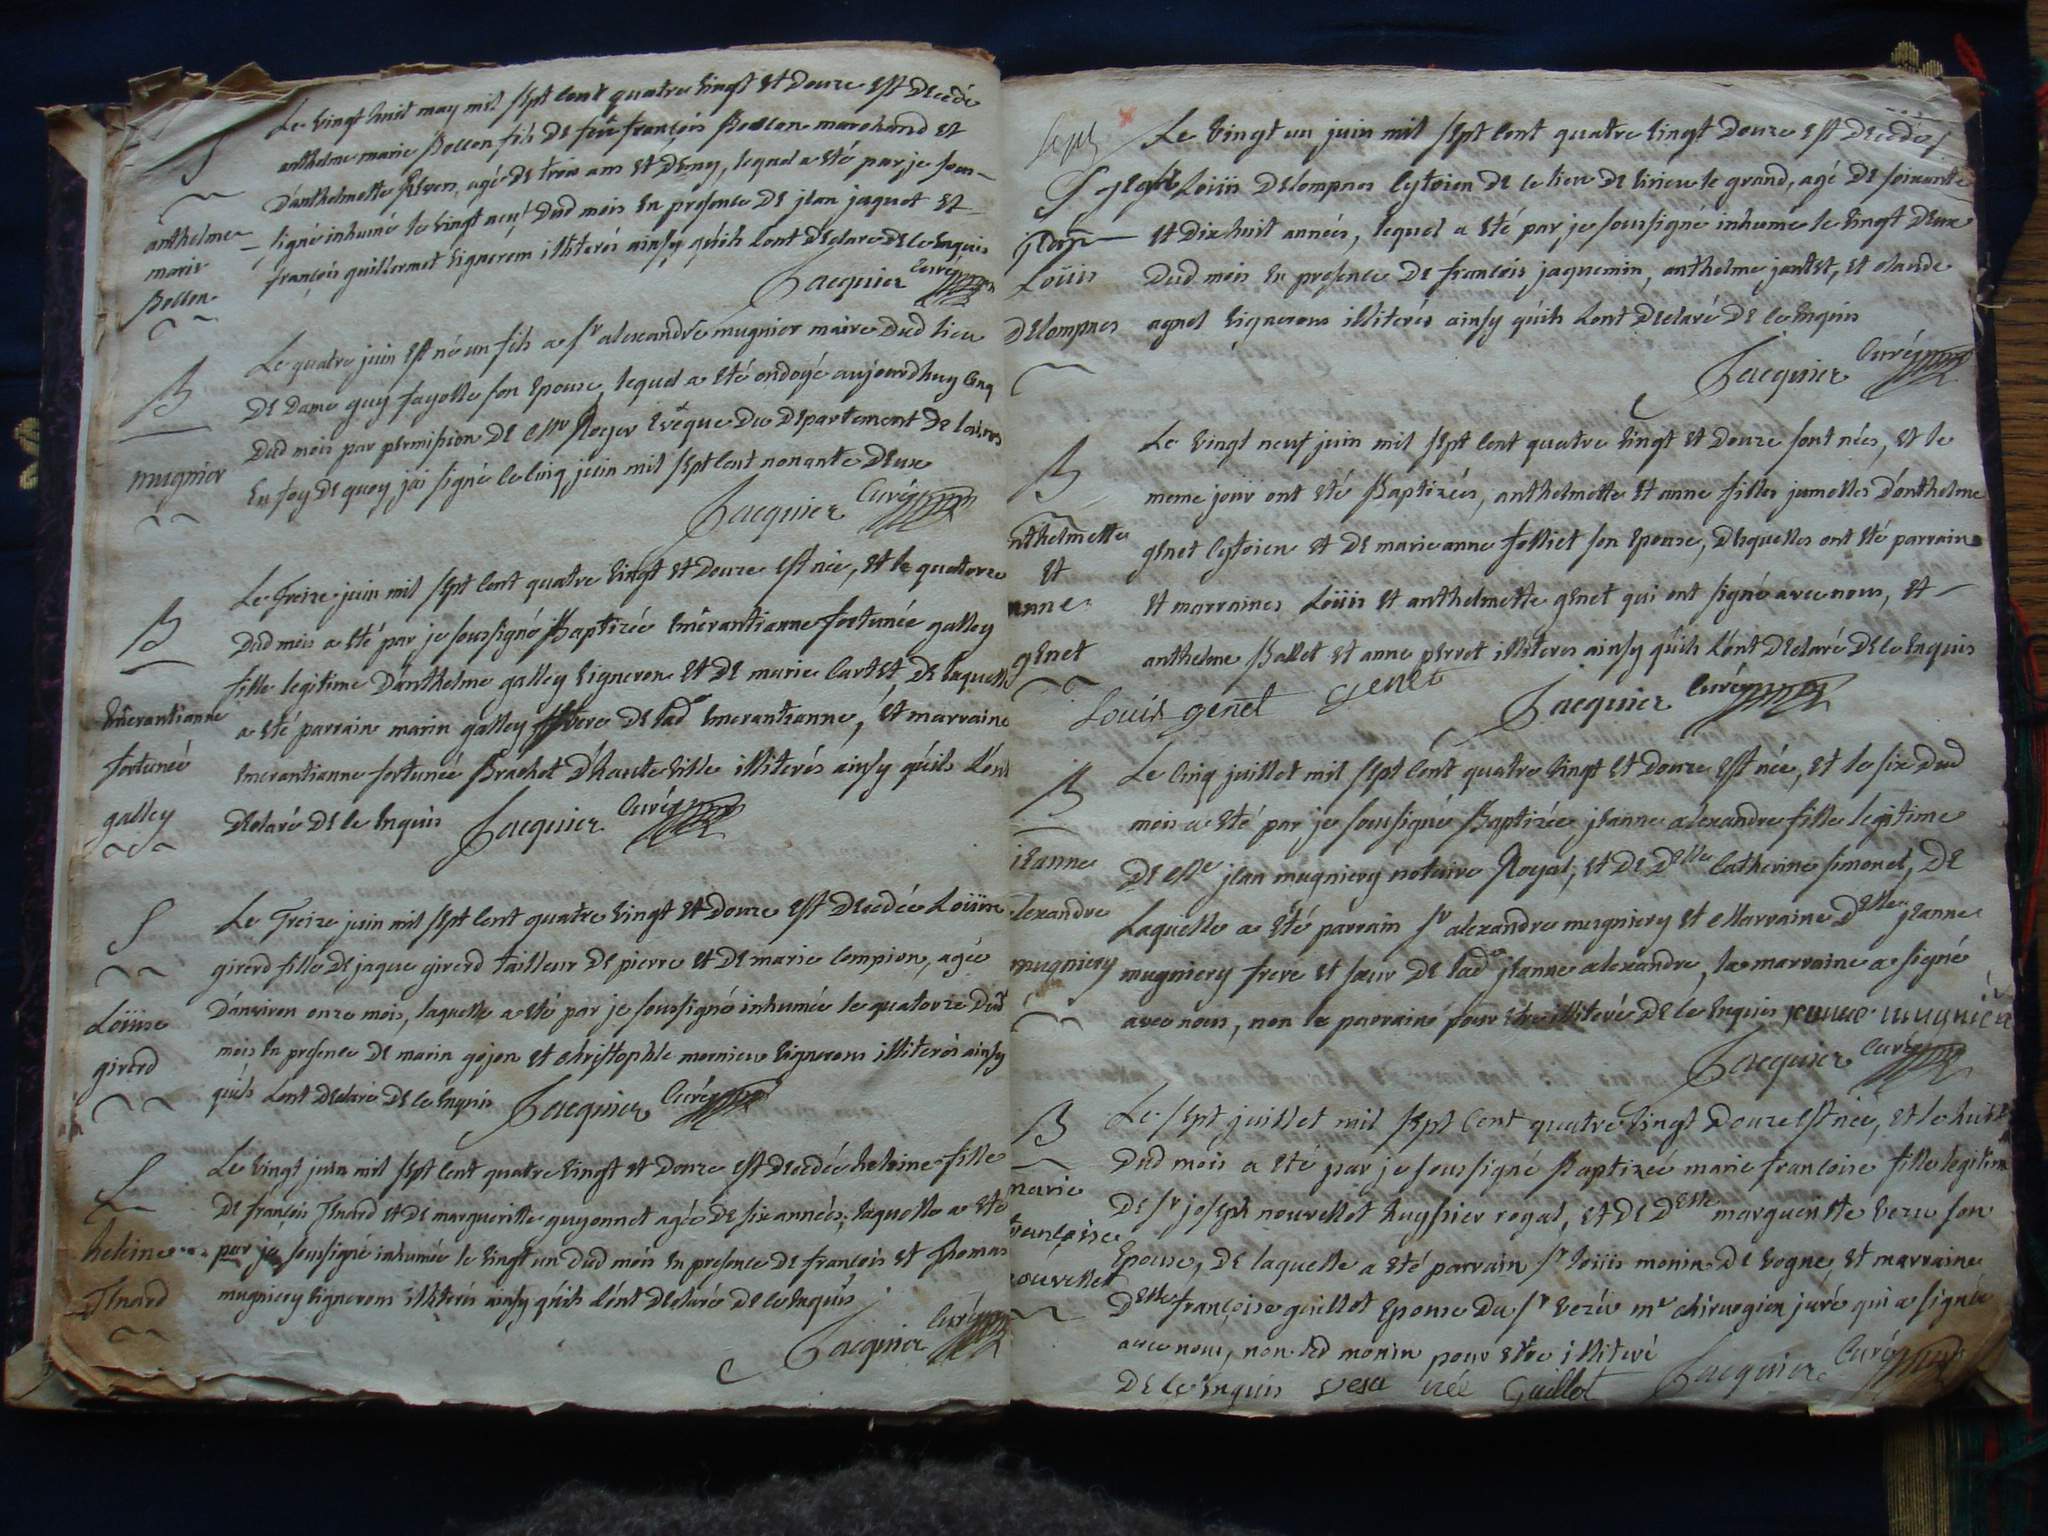 Le vingt huit may mil sept cent quatre vingt et douze est décédé
anthelme marie Bollon fils de feu françois Bollon marchand et
S
D'anthelmette Reven, agé de trois ans et demy, lequel a eté par je sous-
signé inhumé le vingt neuf dud mois en presence de jean jaquet et
françois guillermet vignerons illiterés ainsy qu'ils l'ont declaré de ce enquis
anthelme
marie
Bollon
Jacquier Curé
Le quatre juin est né un fils a sr alexandre mugnier maire dud lieu
B
De Dame guy fayolle son epouse, lequel a eté ondoyé aujourdhuy cinq
Dud mois par permission de Mr Royer Evêque du Departement de
mugnier
En foy de quoy, jai signé le cinq juin mil sept cent nonante deux
Jacquier Curé
Le treize juin mil sept cent quatre vingt et douze est née, et le quatorze
B
Dud mois a eté par je soussigné Baptizée emerantianne fortunée galley
fille legitime D'anthelme galley vigneron et de marie Cartet de laquelle
Emerantianne
a eté parrain marin galley frere de lade emerantianne, et marraine
fortuneé
emerantianne fortunée Brachet D'hauteville illiterés ainsy qu'ils l'ont
galley
declaré de ce enquis Jacquier Curé
Le Treize juin mil sept cent quatre vingt et douze est décedée Loüise
S
girerd fille de jaque girerd tailleur de pierre et de marie Compion, agée
D'anviron onze mois, laquelle a eté par je soussigné inhumée le quatorze dud
Loüise
mois en presence de marin gojon et christophle mornieu vignerons illiterés ainsy
girerd
qu'ils l'ont declaré de ce enquis Jacquier Curé
Le vingt juin mil sept cent quatre vingt et douze est décédée heleine fille
S
De françois Thnard et de margueritte guyonnet agée de six années, laquelle a eté
heleine
par je soussigné inhumée le vingt un dud mois en presence de françois et Thomas
Thnard
mugniery vignerons illiterés ainsy qu'ils l'ont declaré de ce enquis
Jacquier Curé
Sept
Le vingt un juin mil sept cent quatre vingt douze est décédé
S
Loüis Delompnes Cytoien de ce lieu de virieu le grand, agé de soixante
et dix huit années, lequel a eté par je soussigné inhumé le vingt deux
Loüis
Dud mois en presence de françois jaquemin, anthelme jantet, et claude
Delompnes
agnel vignerons illiterés ainsy qu'ils l'ont declaré de ce enquis
Jacquier Curé
Le vingt neuf juin mil sept cent quatre vingt et douze sont nées, et le
B
meme jour ont eté Baptizées, anthelmette et anne filles jumelles D'anthelme
nthelmette
et
genet Cytoien et de marie anne folliet son epouse, desquelles ont eté parrains
nne
et marraines Loüis et anthelmette genet qui ont signé avec nous, et
genet
anthelme Ballet et anne perret illiteres ainsy qu'ils l'ont declaré de ce enquis
Louis genet genet Jacquier Curé
Le Cinq juillet mil sept cent quatre vingt et douze est née, et le six dud
B
mois a eté par je soussigné Baptizée jeanne alexandre fille legitime
jeanne
De Me jean mugniery notaire Royal, et de Delle Catherine simonet, de
lexandre
Laquelle a eté parrain sr alexandre mugniery et Marraine Delle jeanne
mugniery
mugniery frere et sœur de lade jeanne alexandre, la marraine a signé
avec nous, non le parrain pour etre illiteré de ce enquis jeanne mugnier
Jacquier Curé
Le sept juillet mil sept cent quatre vingt douze est née, et le huit
B
Dud mois a eté par je soussigné Baptizée marie francoise fille legitime
marie
De sr joseph nouvellet huyssier royal, et de Delle margueritte vezu son
francoise
Epouse, de laquelle a eté parrain sr loüis monin de vogne, et marraine
ouvellet
Delle françoise guillot epouse du sr vezu me chirurgien juré qui a signé
avec nous, non led monin pour etre illiteré
De ce enquis vesu née Guillot Jacquier Curé